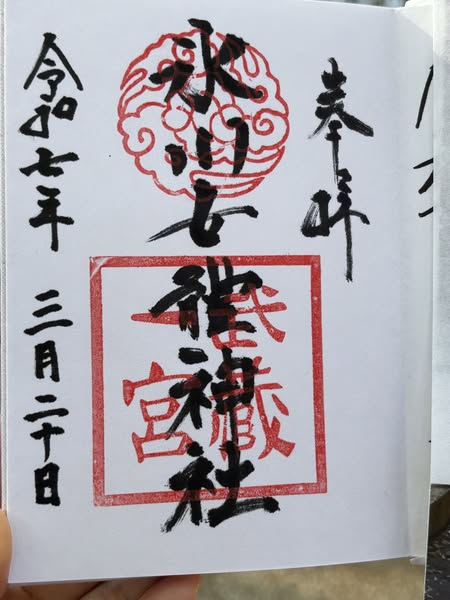 奉拝
氷川女體神社
武蔵
一宮
令和七年 三月二十日